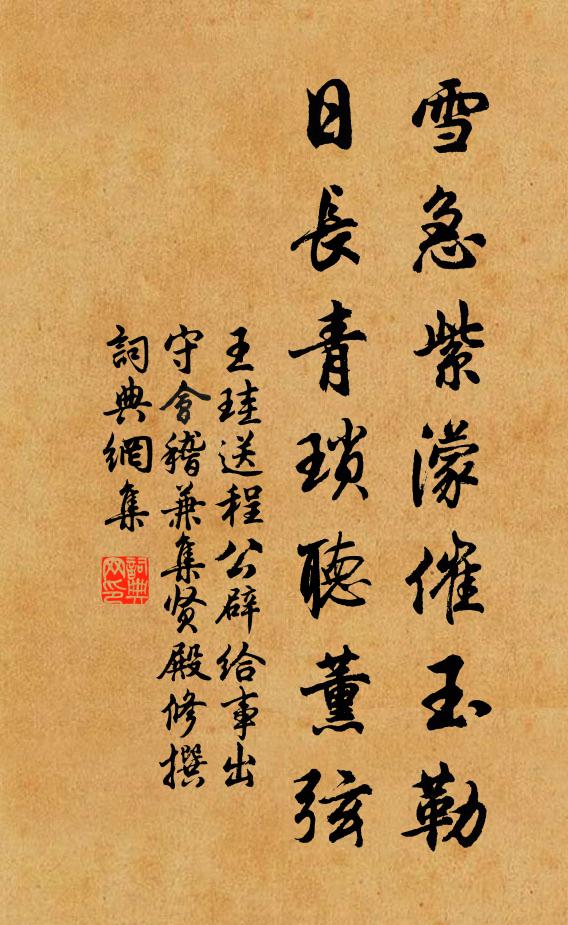 雪急紫濛催玉勒
日長青瑣聽薰弦
王珪送程公辟給事出
守會稽兼集賢殿修撰
詞典網集
詞典網印